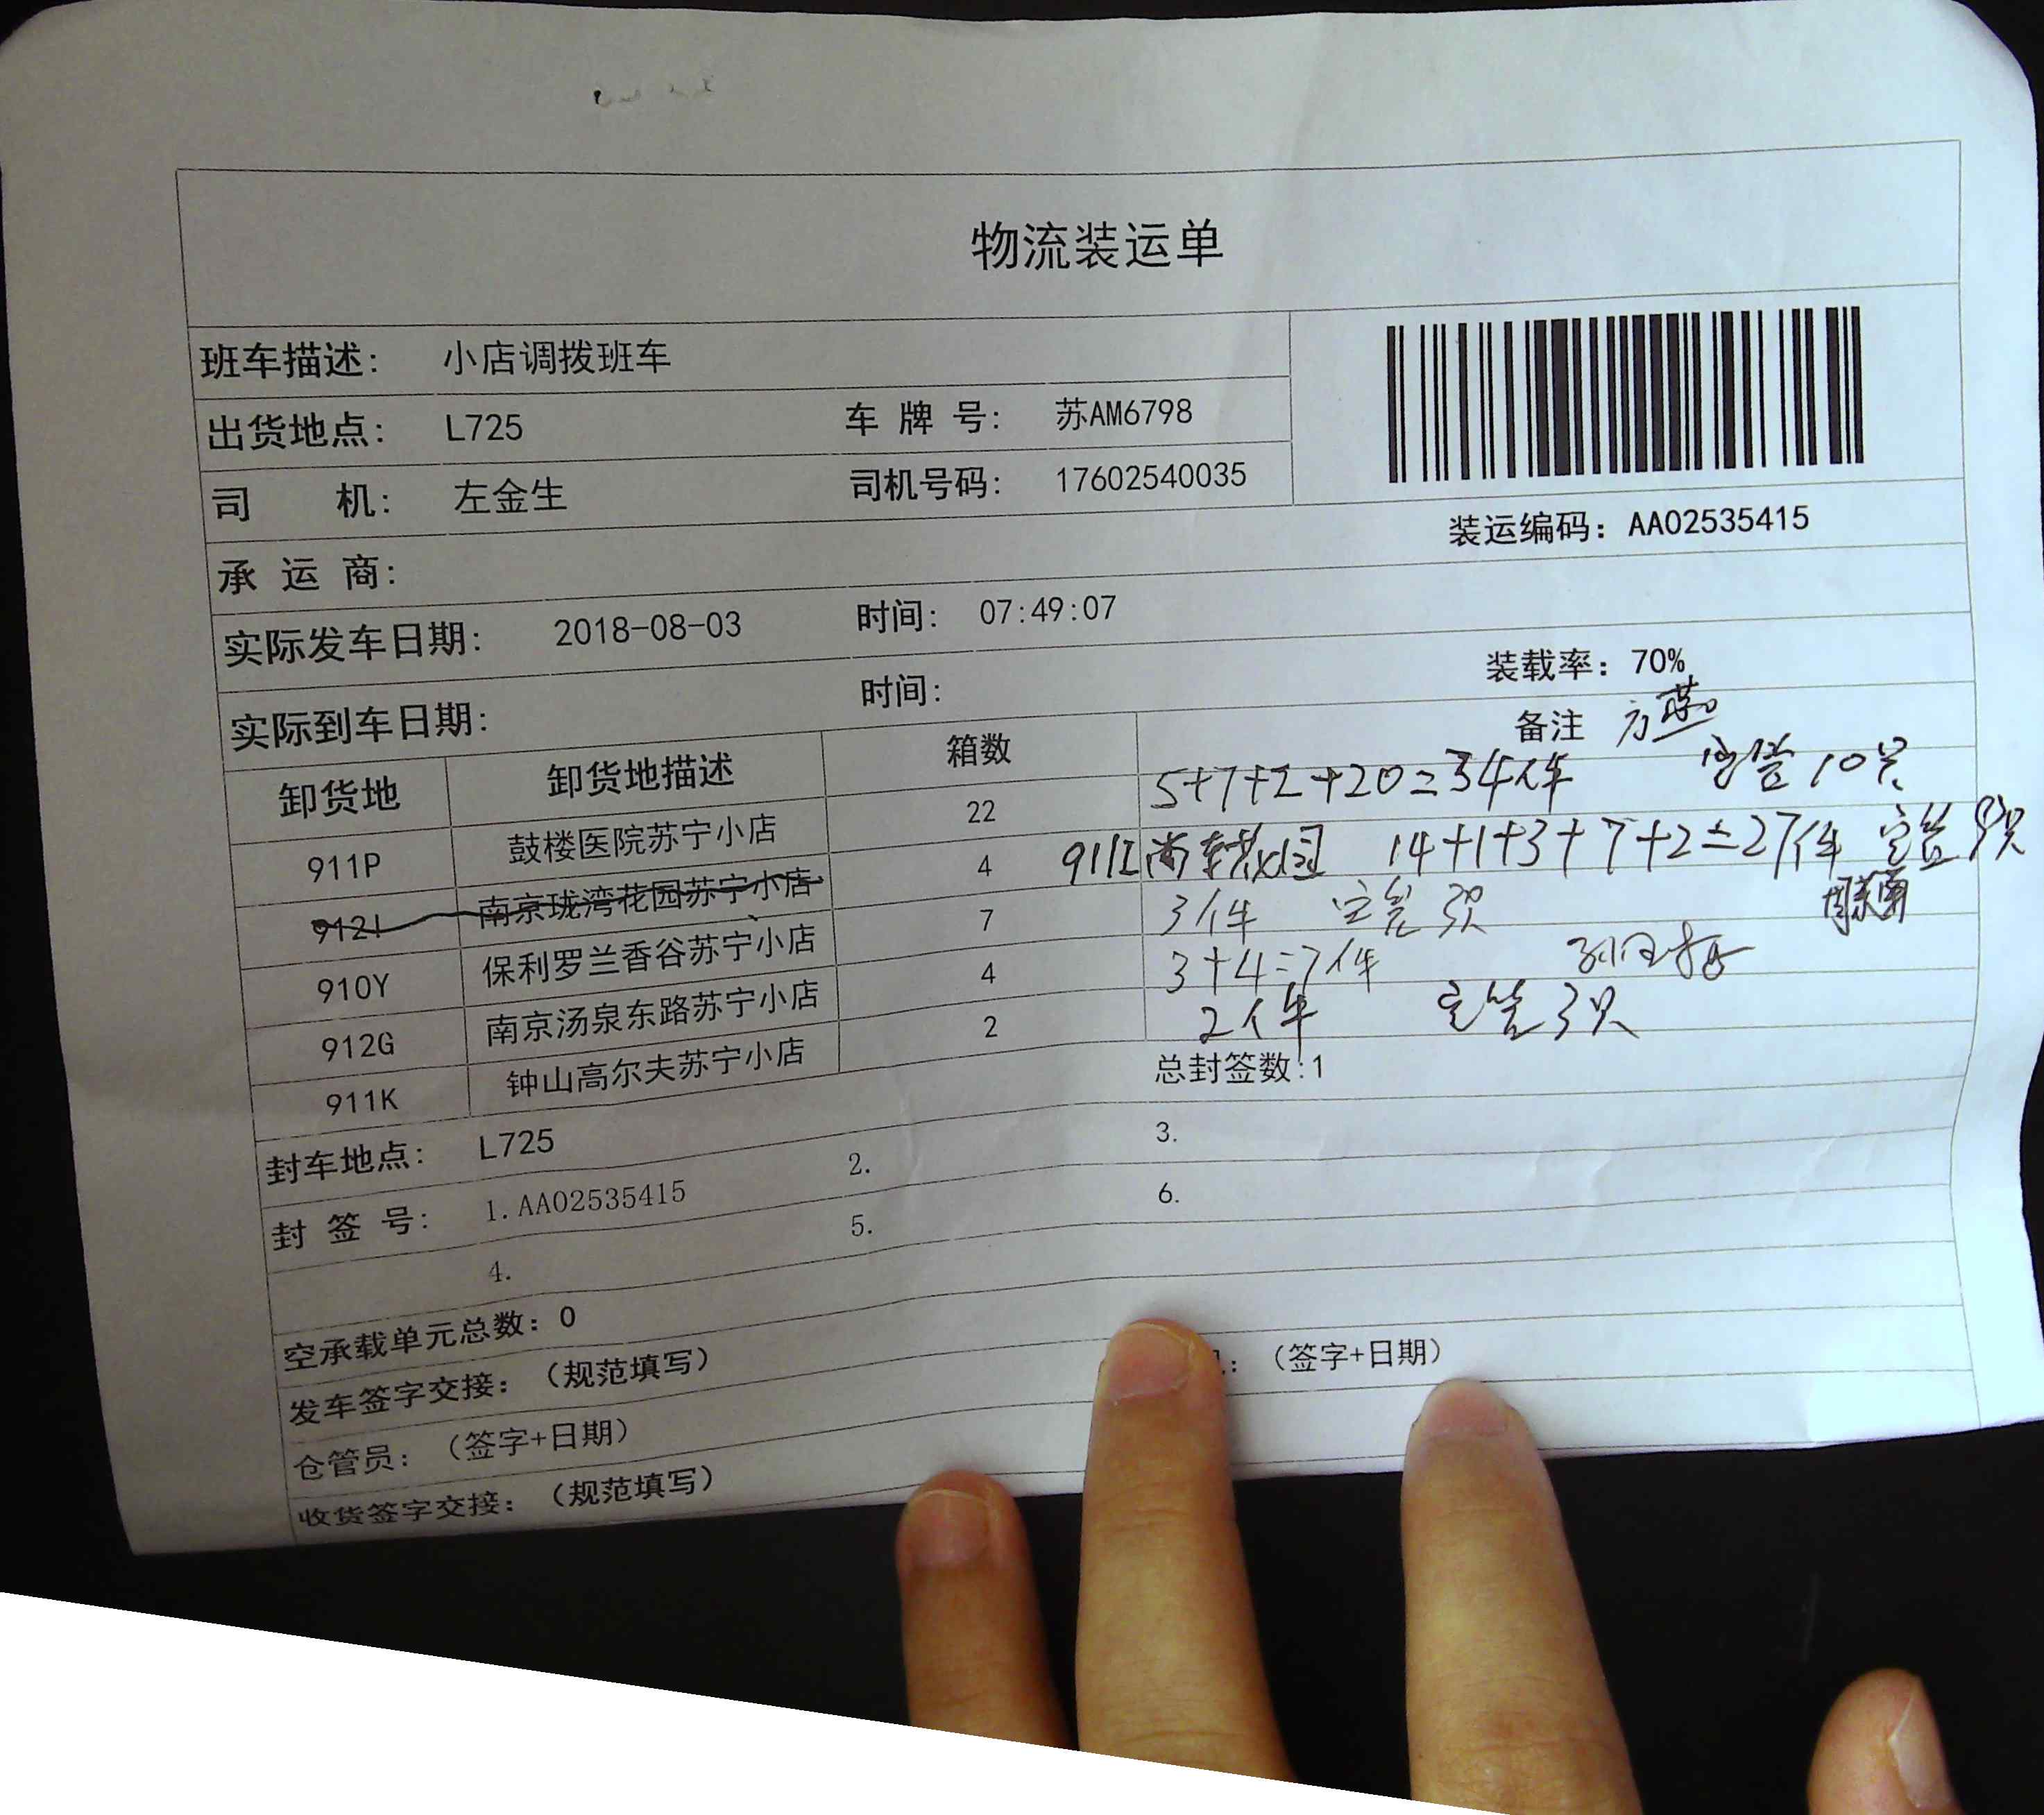 物流装运单
班车描述: 小店调拨班车
出货地点: L725 车 牌 号: 苏AM6798
司 机: 左金生 司机号码: 17602540035
装运编码: AA02535415
承 运 商:
实际发车日期: 2018-08-03 时间: 07:49:07
装载率: 70%
实际到车日期: 时间:
卸货地 卸货地描述 箱数 备注
911P 鼓楼医院苏宁小店 22 5+7+2+20=34件 空筐10只
912I 南京珑湾花园苏宁小店 4 14+1+3+7+2=27件 空筐
910Y 保利罗兰香谷苏宁小店 7 3件 空筐3只
912G 南京汤泉东路苏宁小店 4 3+4=7件
911K 钟山高尔夫苏宁小店 2 2件 空筐3只
封车地点: L725 总封签数:1
封 签 号: 1.AA02535415 2. 3.
4. 5. 6.
空承载单元总数: 0
发车签字交接: (规范填写)
仓管员: (签字+日期) : (签字+日期)
收货签字交接: (规范填写)